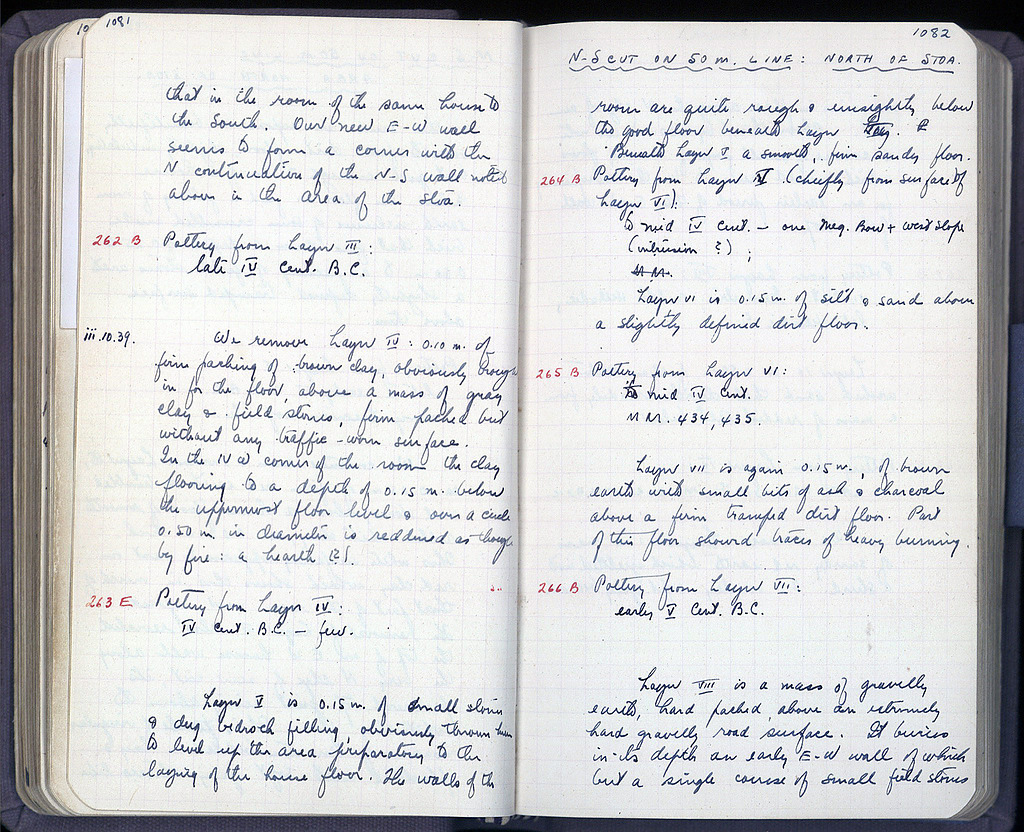 1081
that in the room of the same house to
the South. Our new E-W wall
seems to form a corner with the
N continuation of the N-S wall noted
above in the area of the stoa.
262 B Pottery from Layer III:
late IV Cent. B.C.
iii.10.39. We remove Layer IV: 0.10 m. of
firm packing of brown clay, obviously brought
in for the floor, above a mass of gray
clay & field stones, firm packed but
without any traffic-worn surface.
In the NW corner of the room the clay
flooring to a depth of 0.15 m. below
the uppermost floor level & over a circle
0.50 m. in diameter is reddened as though
by fire: a hearth (?).
263 E Pottery from Layer IV:
IV cent. B.C. — few.
Layer V is 0.15 m. of small stones
& dug bedrock filling, obviously thrown
to level up the area preparatory to the
laying of the house floor. The walls of the
1082
N-S CUT ON 50 m. LINE: NORTH OF STOA.
room are quite rough & unsightly below
the good floor beneath Layer
Beneath Layer V a smooth, firm sandy floor.
264 B Pottery from Layer V (chiefly from surface of
Layer VI):
to mid IV cent. — one Meg. Bowl + West Slope
(intrusion?);
M.M.
Layer VI is 0.15 m. of silt & sand above
a slightly defined dirt floor.
265 B Pottery from Layer VI:
to mid IV Cent.
M M. 434, 435.
Layer VII is again 0.15 m. of brown
earth with small bits of ash & charcoal
above a firm tramped dirt floor. Part
of this floor showed traces of heavy burning.
266 B Pottery from Layer VII:
early V Cent. B.C.
Layer VIII is a mass of gravelly
earth, hard packed, above an extremely
hard gravelly road surface. It buries
in its depth an early E-W wall of which
but a single course of small field stones